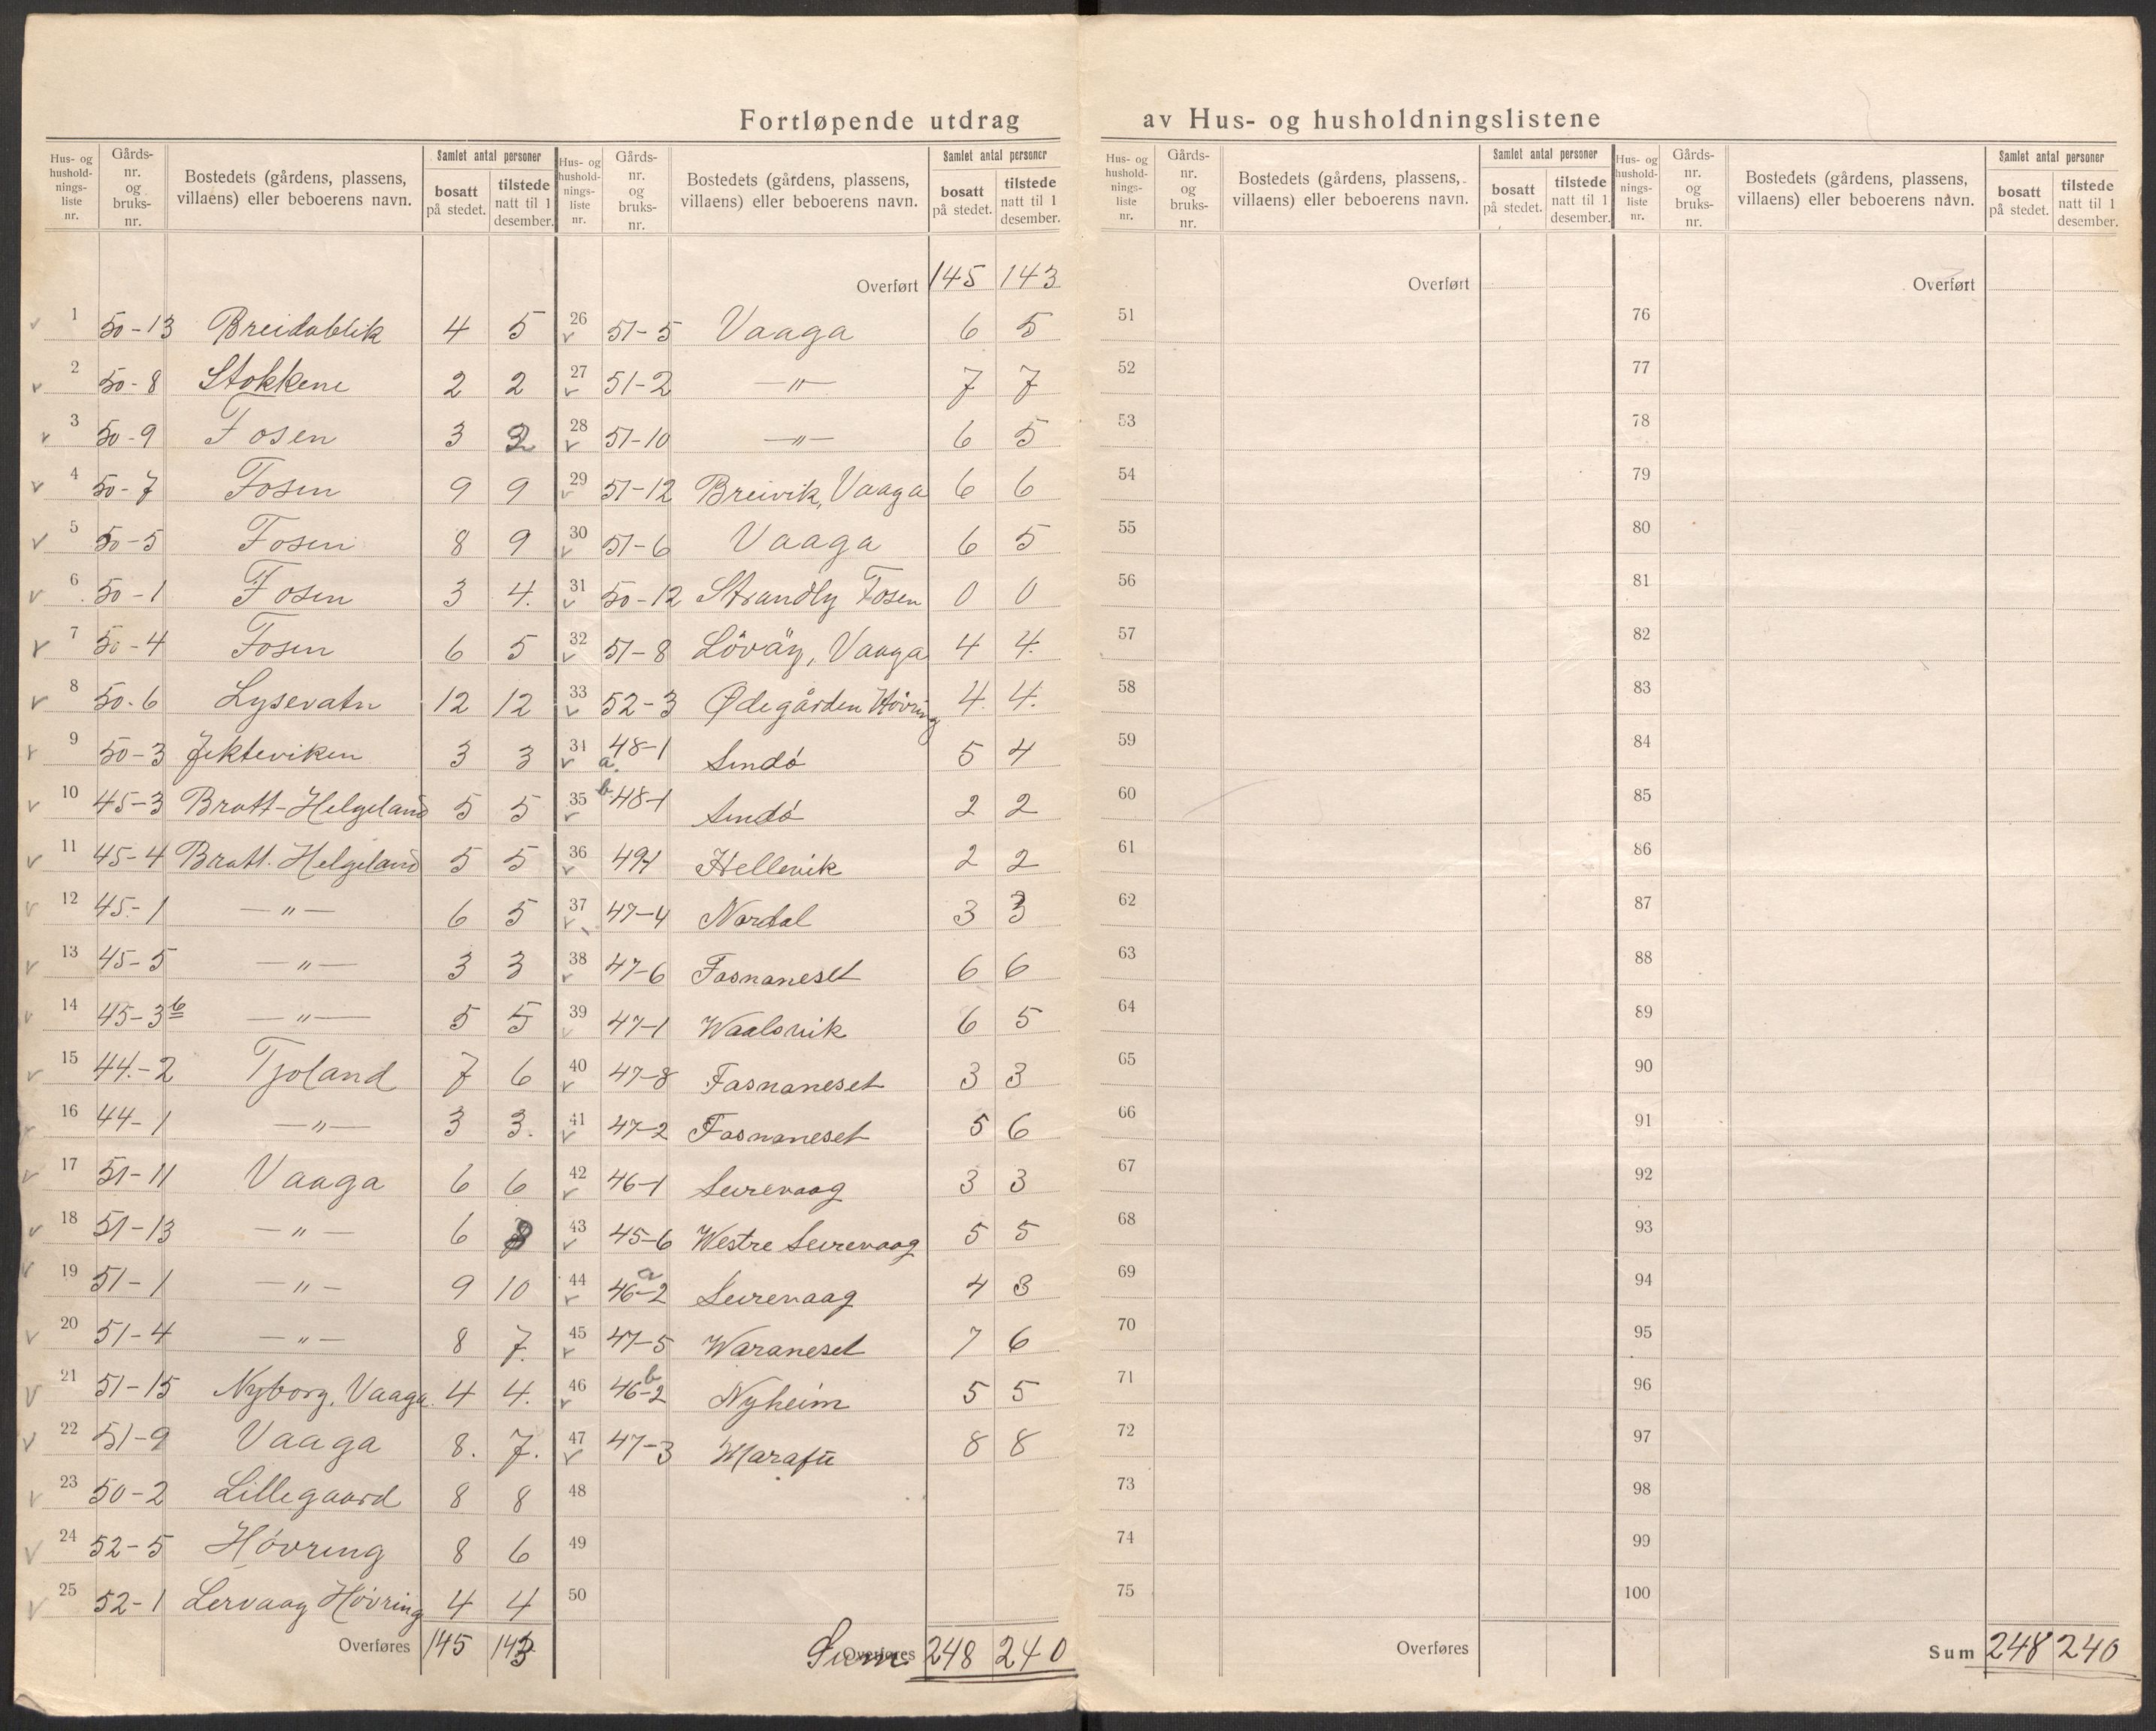 Fortløpende utdrag av Hus- og husholdningslistene
Hus- og husholdningsliste nr. | Gårds-nr. og bruks-nr. | Bostedets (gårdens, plassens, villaens) eller beboerens navn. | Samlet antal personer | bosatt på stedet. | tilstede natt til 1 desember.
1 50-13 Breidablik 4 5
2 50-8 Stokkene 2 2
3 50-9 Fosen 3 2
4 50-7 Fosen 9 9
5 50-5 Fosen 8 9
6 50-1 Fosen 3 4.
7 50-4 Fosen 6 5
8 50-6 Lysevatn 12 12
9 50-3 Jekteviken 3 3
10 45-3 Bratt-Helgeland 5 5
11 45-4 Bratt-Helgeland 5 5
12 45-1 —〃— 6 5
13 45-5 —〃— 3 3
14 45-3b —〃— 5 5
15 44.-2 Tjoland 7 6
16 44-1 —〃— 3 3.
17 51-11 Vaaga 6 6
18 51-13 —〃— 6 8
19 51-1 —〃— 9 10
20 51-4 —〃— 8 7.
21 51-15 Nyborg, Vaaga. 4 4.
22 51-9 Vaaga 8. 7.
23 50-2 Lillegaard 8 8
24 52-5 Hövring 8 6
25 52-1 Lervaag Hövring 4 4
Overføres 145 143
Hus- og husholdningsliste nr. | Gårds-nr. og bruks-nr. | Bostedets (gårdens, plassens, villaens) eller beboerens navn. | Samlet antal personer | bosatt på stedet. | tilstede natt til 1 desember.
Overført 145 143
26 51-5 Vaaga 6 5
27 51-2 —〃— 7 7
28 51-10 —〃— 6 5
29 51-12 Breivik, Vaaga 6 6
30 51-6 Vaaga 6 5
31 50-12 Strandly Fosen 0 0
32 51-8 Vaaga 4 4.
33 52-3 Ødegården Hövring 4. 4.
34 48-1 a. Sundö 5 4
35 b 48-1 Sundö 2 2
36 49-1 Hellevik 2 2
37 47-4 Nordal 3 3
38 47-6 Fosnaneset 6 6
39 47-1 Waalsvik 6 5
40 47-8 Fasnaneset 3 3
41 47-2 Fosnaneset 5 6
42 46-1 Seurevaag 3 3
43 45-6 Westre Seurevaag 5 5
44 46-2 a Seurevaag 4 3
45 47-5 Waraneset 7 6
46 46-2 b Nyheim 5 5
47 47-3 8 8
48
49
50
Overføres Sum 248 240
Hus- og husholdningsliste nr. | Gårds-nr. og bruks-nr. | Bostedets (gårdens, plassens, villaens) eller beboerens navn. | Samlet antal personer | bosatt på stedet. | tilstede natt til 1 desember.
Overført
51
52
53
54
55
56
57
58
59
60
61
62
63
64
65
66
67
68
69
70
71
72
73
74
75
Overføres
Hus- og husholdningsliste nr. | Gårds-nr. og bruks-nr. | Bostedets (gårdens, plassens, villaens) eller beboerens navn. | Samlet antal personer | bosatt på stedet. | tilstede natt til 1 desember.
Overført
76
77
78
79
80
81
82
83
84
85
86
87
88
89
90
91
92
93
94
95
96
97
98
99
100
Sum 248 240